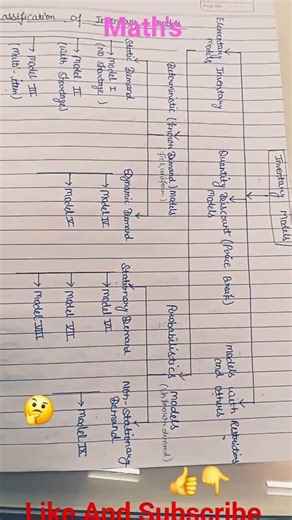 Maths
Classification of Inventory Models
Inventory Models
Elementary Inventory
models
Quantity Discount (Price Break)
Models
models with Restrictions
and others
Deterministic (known Demand) models
Probabilistics models
(Unknown demand)
Static Demand
Dynamic Demand
Stationary Demand
Non-Stationary
Demand
Model I
(No shortage)
Model II
(with Shortage)
Model III
(Multi-Item)
Model IV
Model V
Model VI
Model VII
Model VIII
Model IX
Like And Subscribe